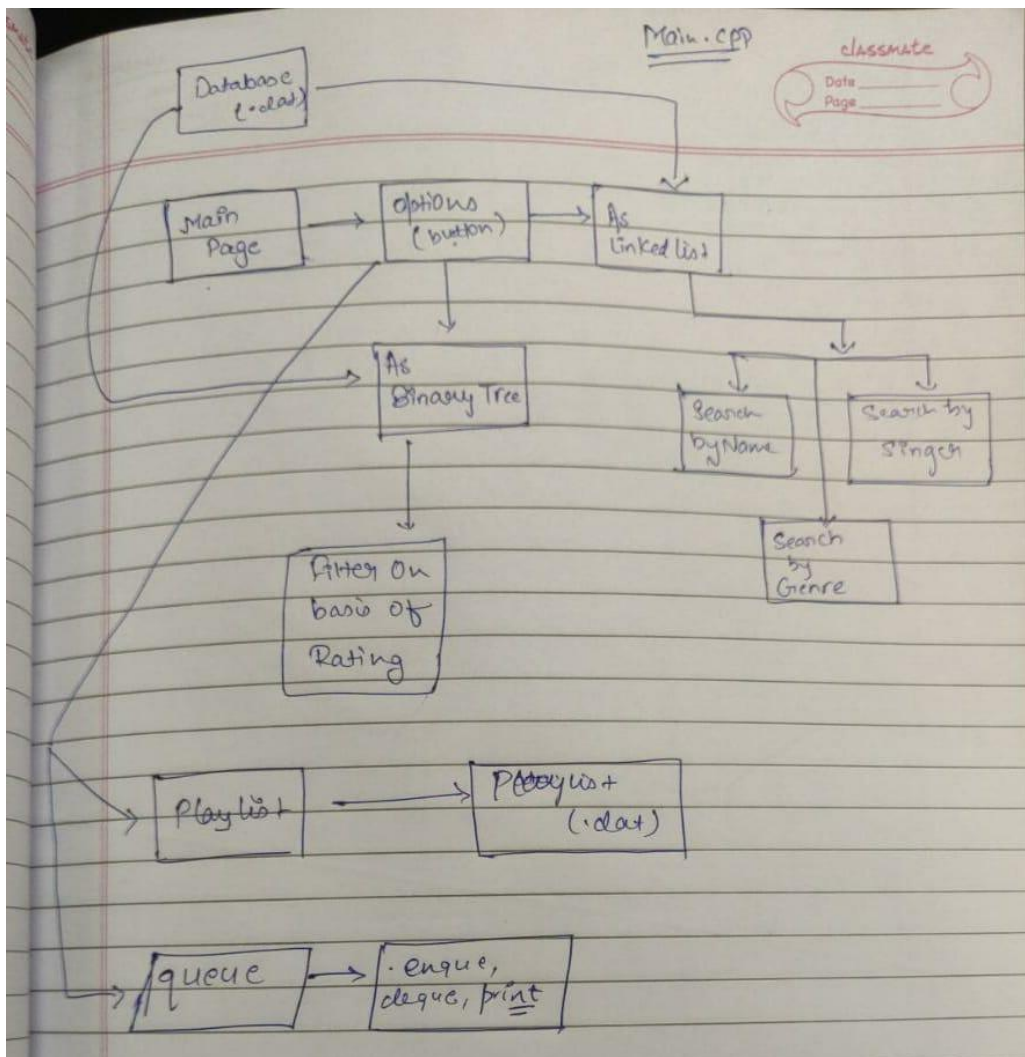 Main.cpp
classmate
Date
Page
Database
(.dat)
Main
Page
options
(button)
As
Linked list
As
Binary Tree
Search
by Name
Search by
Singer
Search
by
Genre
Filter On
basis of
Rating
Playlist
Playlist
(.dat)
queue
. enque,
deque, print